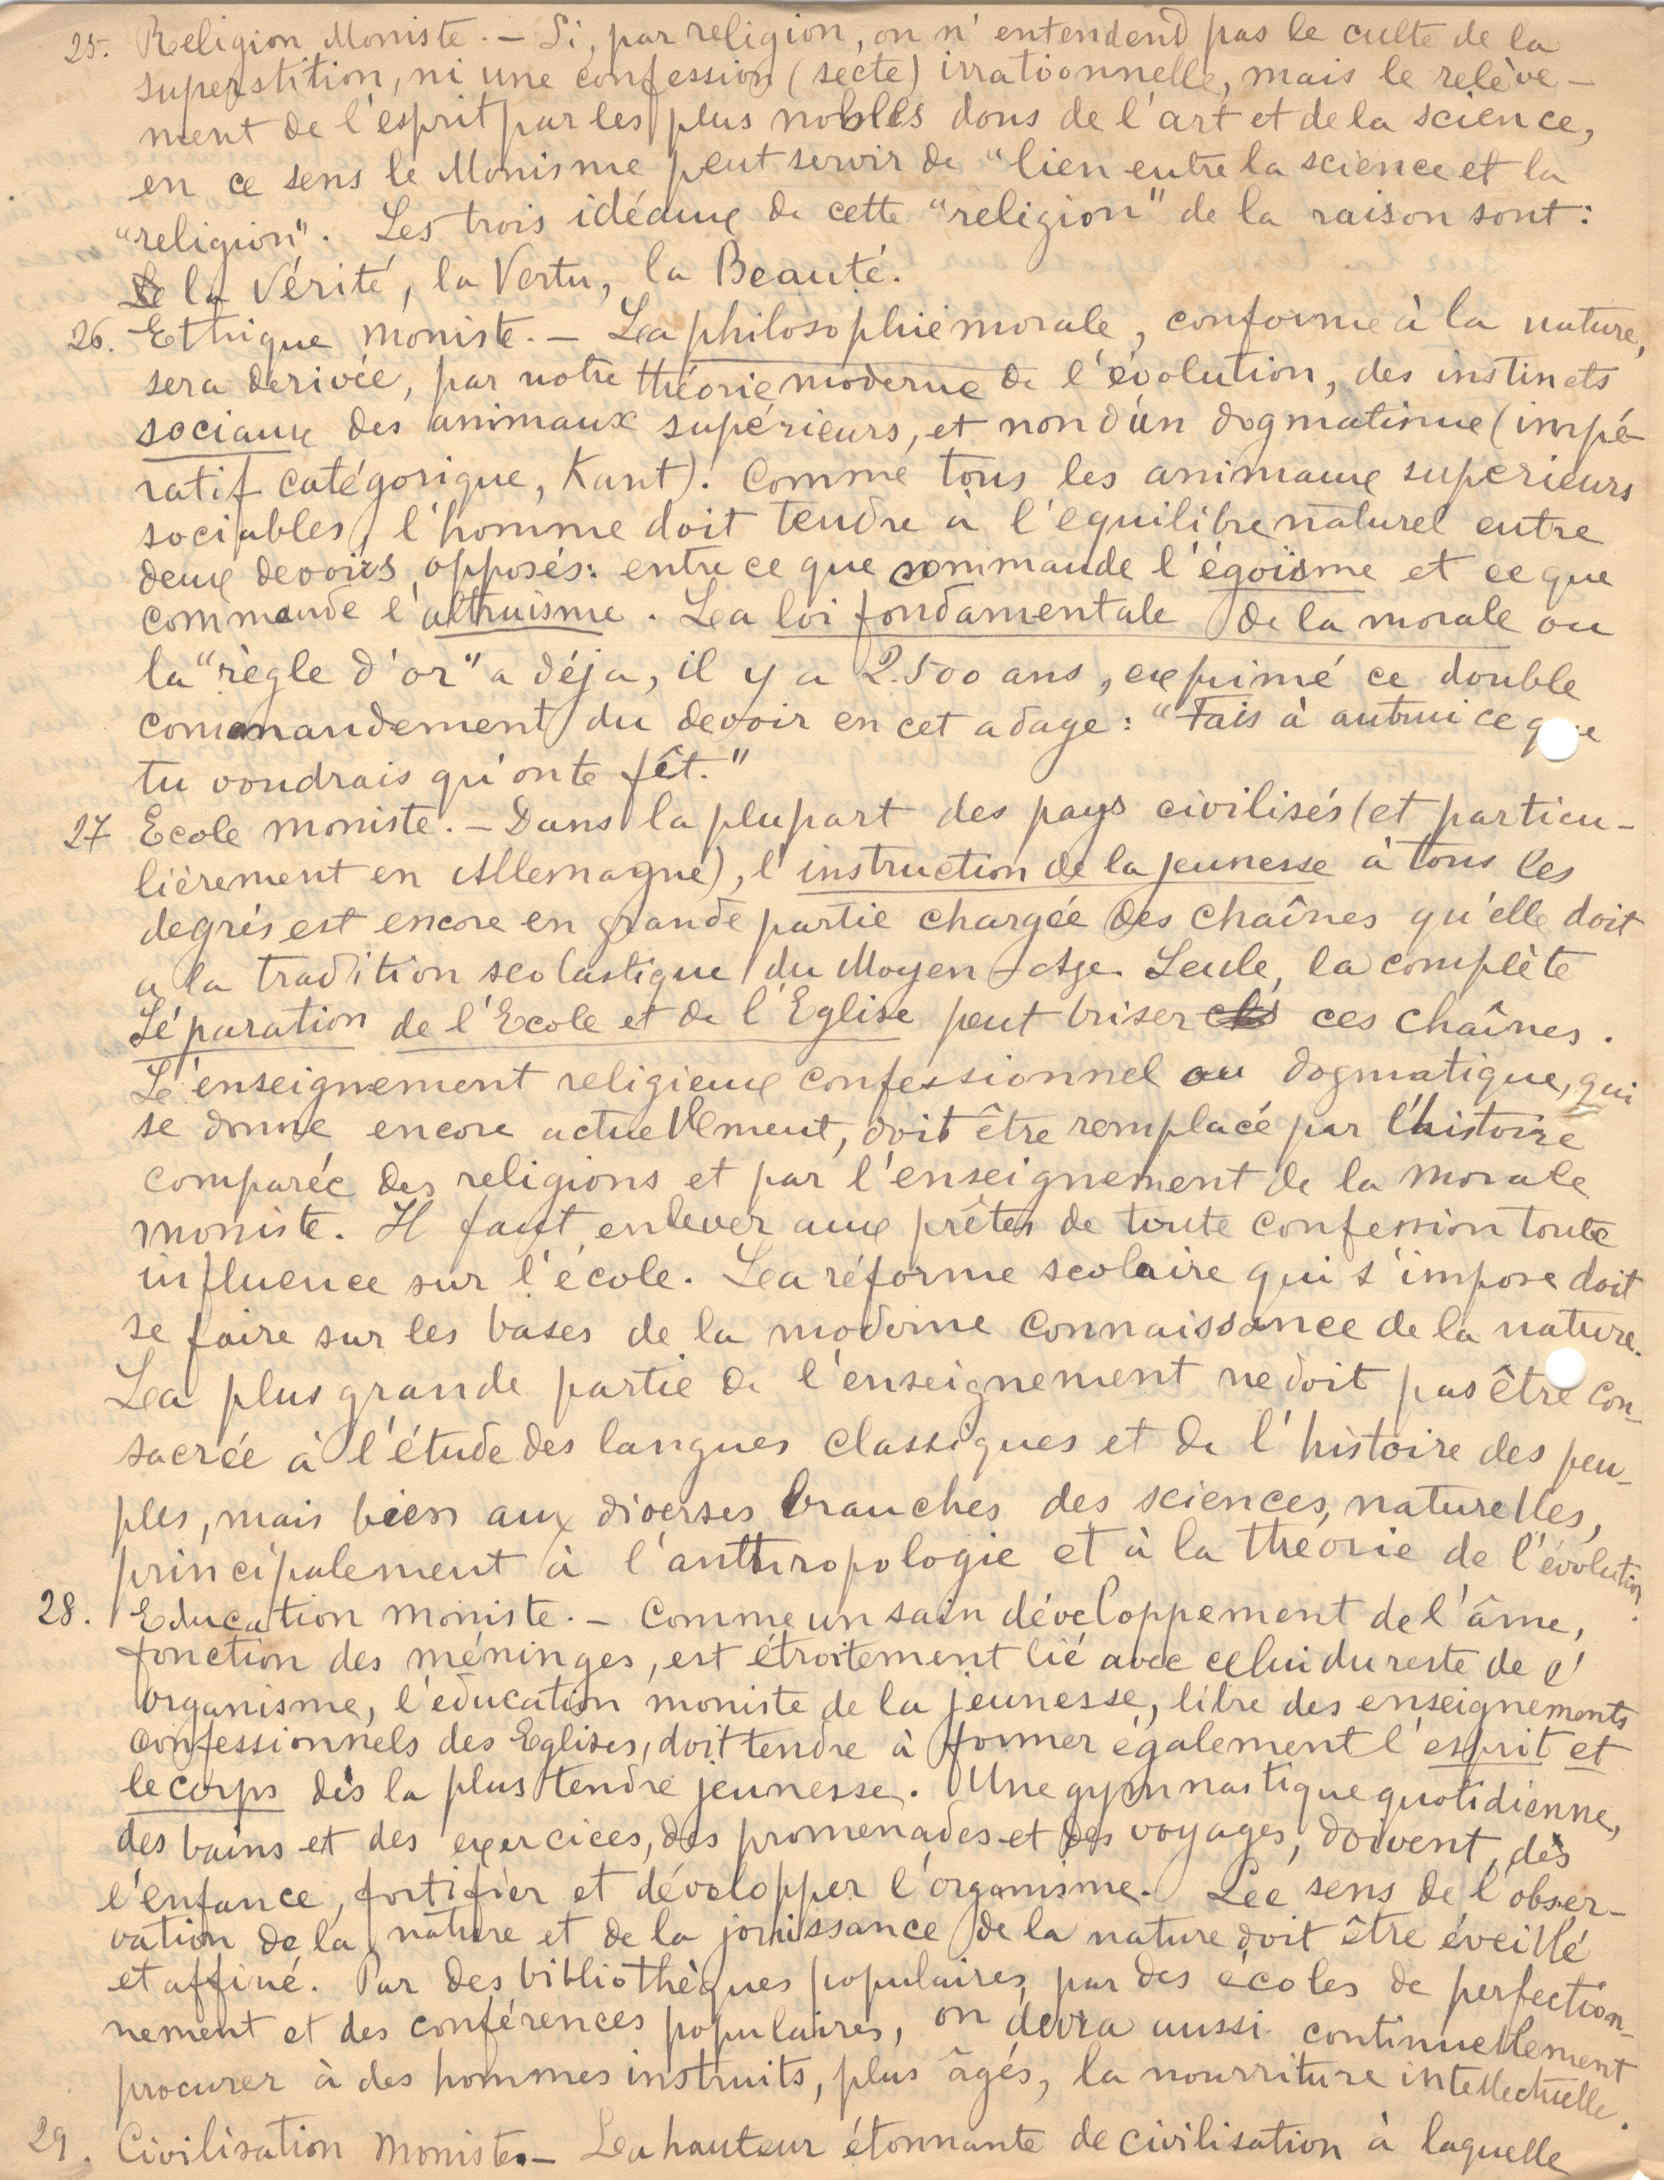 25. Religion Moniste. — Si, par religion, on n'entendend pas le culte de la
superstition, ni une confession (secte) irratoonnelle, mais le relève-
ment de l'esprit par les plus nobles dons de l'art et de la science,
en ce sens le Monisme peut servir de "lien entre la science et la
"religion". Les trois idéaux de cette "religion" de la raison sont:
la Vérité, la Vertu, la Beauté.
26. Ethique moniste. — La philosophie morale, conforme à la nature,
sera derivée, par notre théorie moderne de l'évolution, des instincts
sociaux des animaux supérieurs, et non d'un dogmatisme (impé-
ratif catégorique, Kant). Comme tous les animaux superieurs
sociables, l'homme doit tendre à l'equilibre naturel entre
deux devoirs opposés: entre ce que commande l'égoïsme et ce que
commande l'altruisme. La loi fondamentale de la morale ou
la "règle d'or" a déja, il y a 2.500 ans, exprimé ce double
commandement du devoir en cet adage: "Fais à autrui ce que
tu voudrais qu'on te fêt."
27 Ecole moniste. — Dans la plupart des pays civilisés (et particu-
lièrement en Allemagne), l'instruction de la jeunesse à tous les
degrés est encore en grande partie chargée des chaînes qu'elle doit
a la tradition scolastique du Moyen-Age. Seule, la complète
Séparation de l'Ecole et de l'Eglise peut briser ces chaînes.
L'enseignement religieux confessionnel ou dogmatique, qui
se donne encore actuellement, doit être remplacé par l'histoire
comparée des religions et par l'enseignement de la morale
moniste. Il faut enlever aux prêtes de toute confession toute
influence sur l'école. La réforme scolaire qui s'impose doit
se faire sur les bases de la moderne connaissance de la nature.
La plus grande partie de l'enseignement ne doit pas être con-
sacrée à l'étude des langues classiques et de l'histoire des peu-
ples, mais bien aux diverses branches des sciences, naturelles,
principalement à l'anthropologie et à la théorie de l'évolution.
28. Education moniste. — Comme un sain développement de l'âme,
fonction des méninges, est étroitement lié avec celui du reste de l'
organisme, l'education moniste de la jeunesse, libre des enseignements
confessionnels des Eglises, doit tendre à former également l'esprit et
le corps dès la plus tendre jeunesse. Une gymnastique quotidienne,
des bains et des exercices, des promenades et des voyages, doivent, dès
l'enfance, fortifier et développer l'organisme. Le sens de l'obser-
vation de la nature et de la jouissance de la nature doit être éveillé
et affiné. Par des bibliothèques populaires, par des écoles de perfection-
nement et des conférences populaires, on devra aussi continuellement
procurer à des hommes instruits, plus âgés, la nourriture intellectuelle.
29. Civilisation Moniste. — La hauteur étonnante de civilisation à laquelle